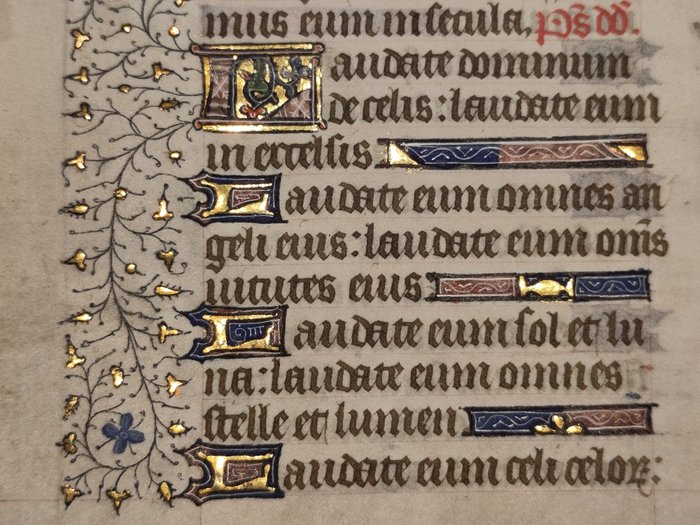 mus eum in secula, Ps dd.
Laudate dominum
de celis: laudate eum
in excelsis
Laudate eum omnes an
geli eius: laudate eum oms
uirtutes eius
Laudate eum sol et lu
na: laudate eum omnes
stelle et lumen
Laudate eum celi celoꝝ: